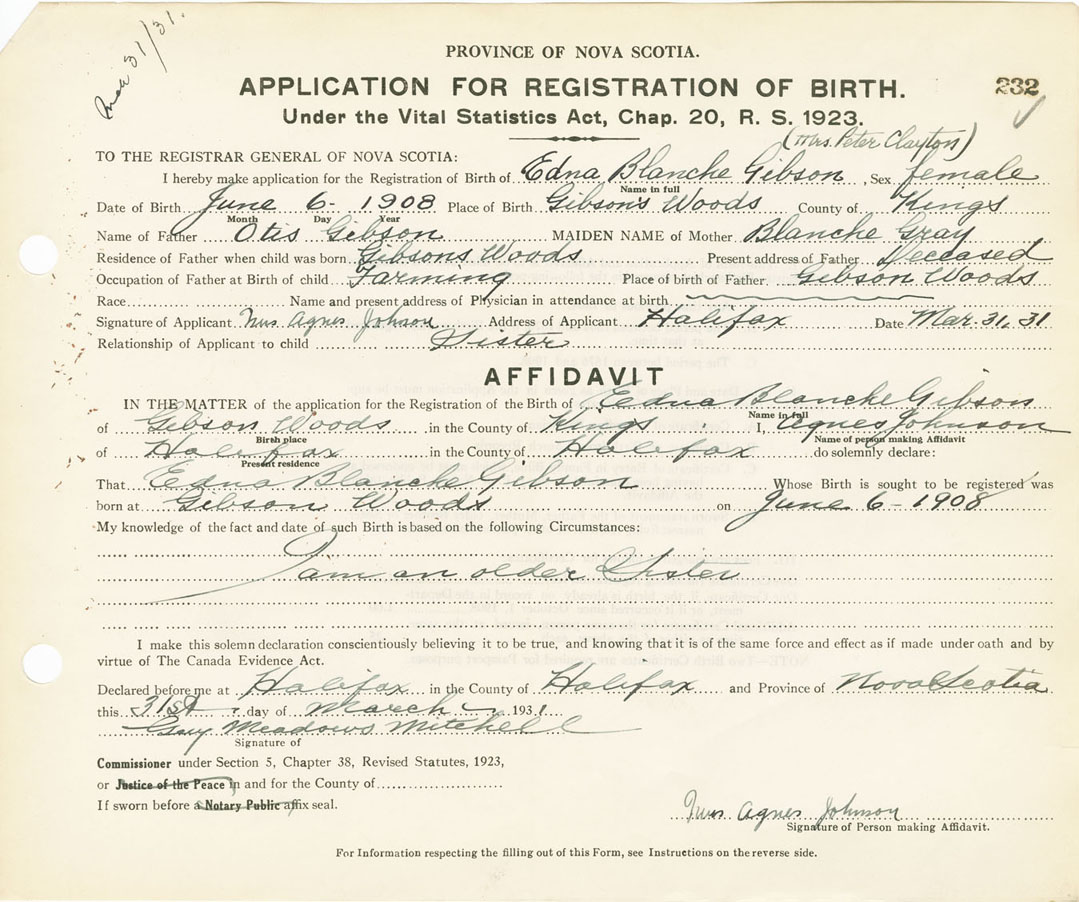 Mch 31/31.
PROVINCE OF NOVA SCOTIA.
APPLICATION FOR REGISTRATION OF BIRTH.
232
Under the Vital Statistics Act, Chap. 20, R. S. 1923.
(Mrs. Peter Clayton)
TO THE REGISTRAR GENERAL OF NOVA SCOTIA:
I hereby make application for the Registration of Birth of Edna Blanche Gibson, Sex female
Name in full
Date of Birth June 6 - 1908 Place of Birth Gibson's Woods County of Kings
Month Day Year
Name of Father Otis Gibson MAIDEN NAME of Mother Blanche Gray
Residence of Father when child was born Gibson's Woods Present address of Father Deceased
Occupation of Father at Birth of child Farming Place of birth of Father Gibson Woods
Race Name and present address of Physician in attendance at birth
Signature of Applicant Mrs Agnes Johnson Address of Applicant Halifax Date Mar. 31, 31
Relationship of Applicant to child Sister
AFFIDAVIT
IN THE MATTER of the application for the Registration of the Birth of Edna Blanche Gibson
Name in full
of Gibson Woods in the County of Kings I, Agnes Johnson
Birth place Name of person making Affidavit
of Halifax in the County of Halifax do solemnly declare:
Present residence
That Edna Blanche Gibson Whose Birth is sought to be registered was
born at Gibson Woods on June 6 - 1908
My knowledge of the fact and date of such Birth is based on the following Circumstances:
I am an older Sister
I make this solemn declaration conscientiously believing it to be true, and knowing that it is of the same force and effect as if made under oath and by
virtue of The Canada Evidence Act.
Declared before me at Halifax in the County of Halifax and Province of Nova Scotia
this 31st day of March 1931
Guy Meadows Mitchell
Signature of
Commissioner under Section 5, Chapter 38, Revised Statutes, 1923,
or Justice of the Peace in and for the County of
If sworn before a Notary Public affix seal.
Mrs Agnes Johnson
Signature of Person making Affidavit.
For Information respecting the filling out of this Form, see Instructions on the reverse side.